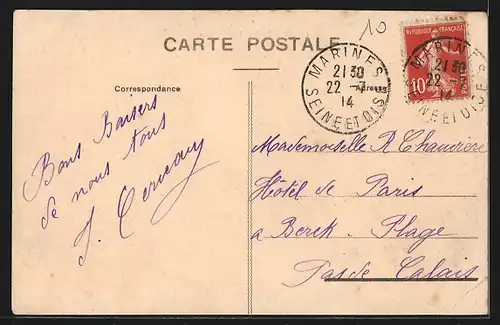 10
CARTE POSTALE
REPUBLIQUE FRANÇAISE
10
POSTES
MARINES
21 30
22 - 7
14
SEINE ET OISE
MARINES
21 30
22 - 7
14
SEINE ET OISE
Correspondance
Adresse
Bons Baisers
de nous tous
J.
Mademoiselle R Chaudière
Hôtel de Paris
a Berck - Plage
Pas de Calais